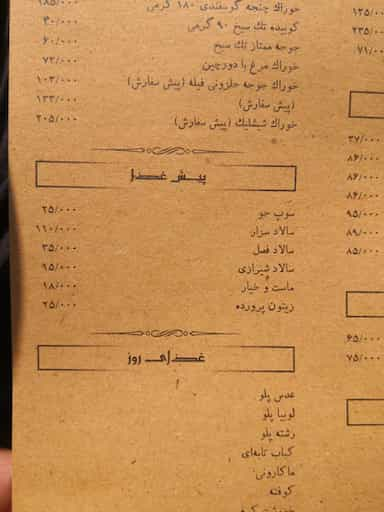 خوراک چنجه گوسفندی ۱۸۰ گرمی ۱۸۵/۰۰۰
کوبیده تک سیخ ۹۰ گرمی ۴۰/۰۰۰
جوجه ممتاز تک سیخ ۶۰/۰۰۰
خوراک مرغ با دورچین ۷۲/۰۰۰
خوراک جوجه حلزونی فیله (پیش سفارش) ۱۰۳/۰۰۰
(پیش سفارش) ۱۳۳/۰۰۰
خوراک شیشلیک (پیش سفارش) ۲۰۵/۰۰۰
پیش غذا
سوپ جو ۲۵/۰۰۰
سالاد سزار ۱۱۰/۰۰۰
سالاد فصل ۳۵/۰۰۰
سالاد شیرازی ۹۵/۰۰۰
ماست و خیار ۱۸/۰۰۰
زیتون پرورده ۲۵/۰۰۰
غذای روز
عدس پلو
لوبیا پلو
رشته پلو
کباب تابه‌ای
ماکارونی
کوفته
۱۲۵/۰۰۰
۲۳۵/۰۰۰
۷۱/۰۰۰
۳۷/۰۰۰
۸۶/۰۰۰
۸۶/۰۰۰
۸۶/۰۰۰
۹۵/۰۰۰
۸۹/۰۰۰
۸۵/۰۰۰
۶۵/۰۰۰
۷۵/۰۰۰